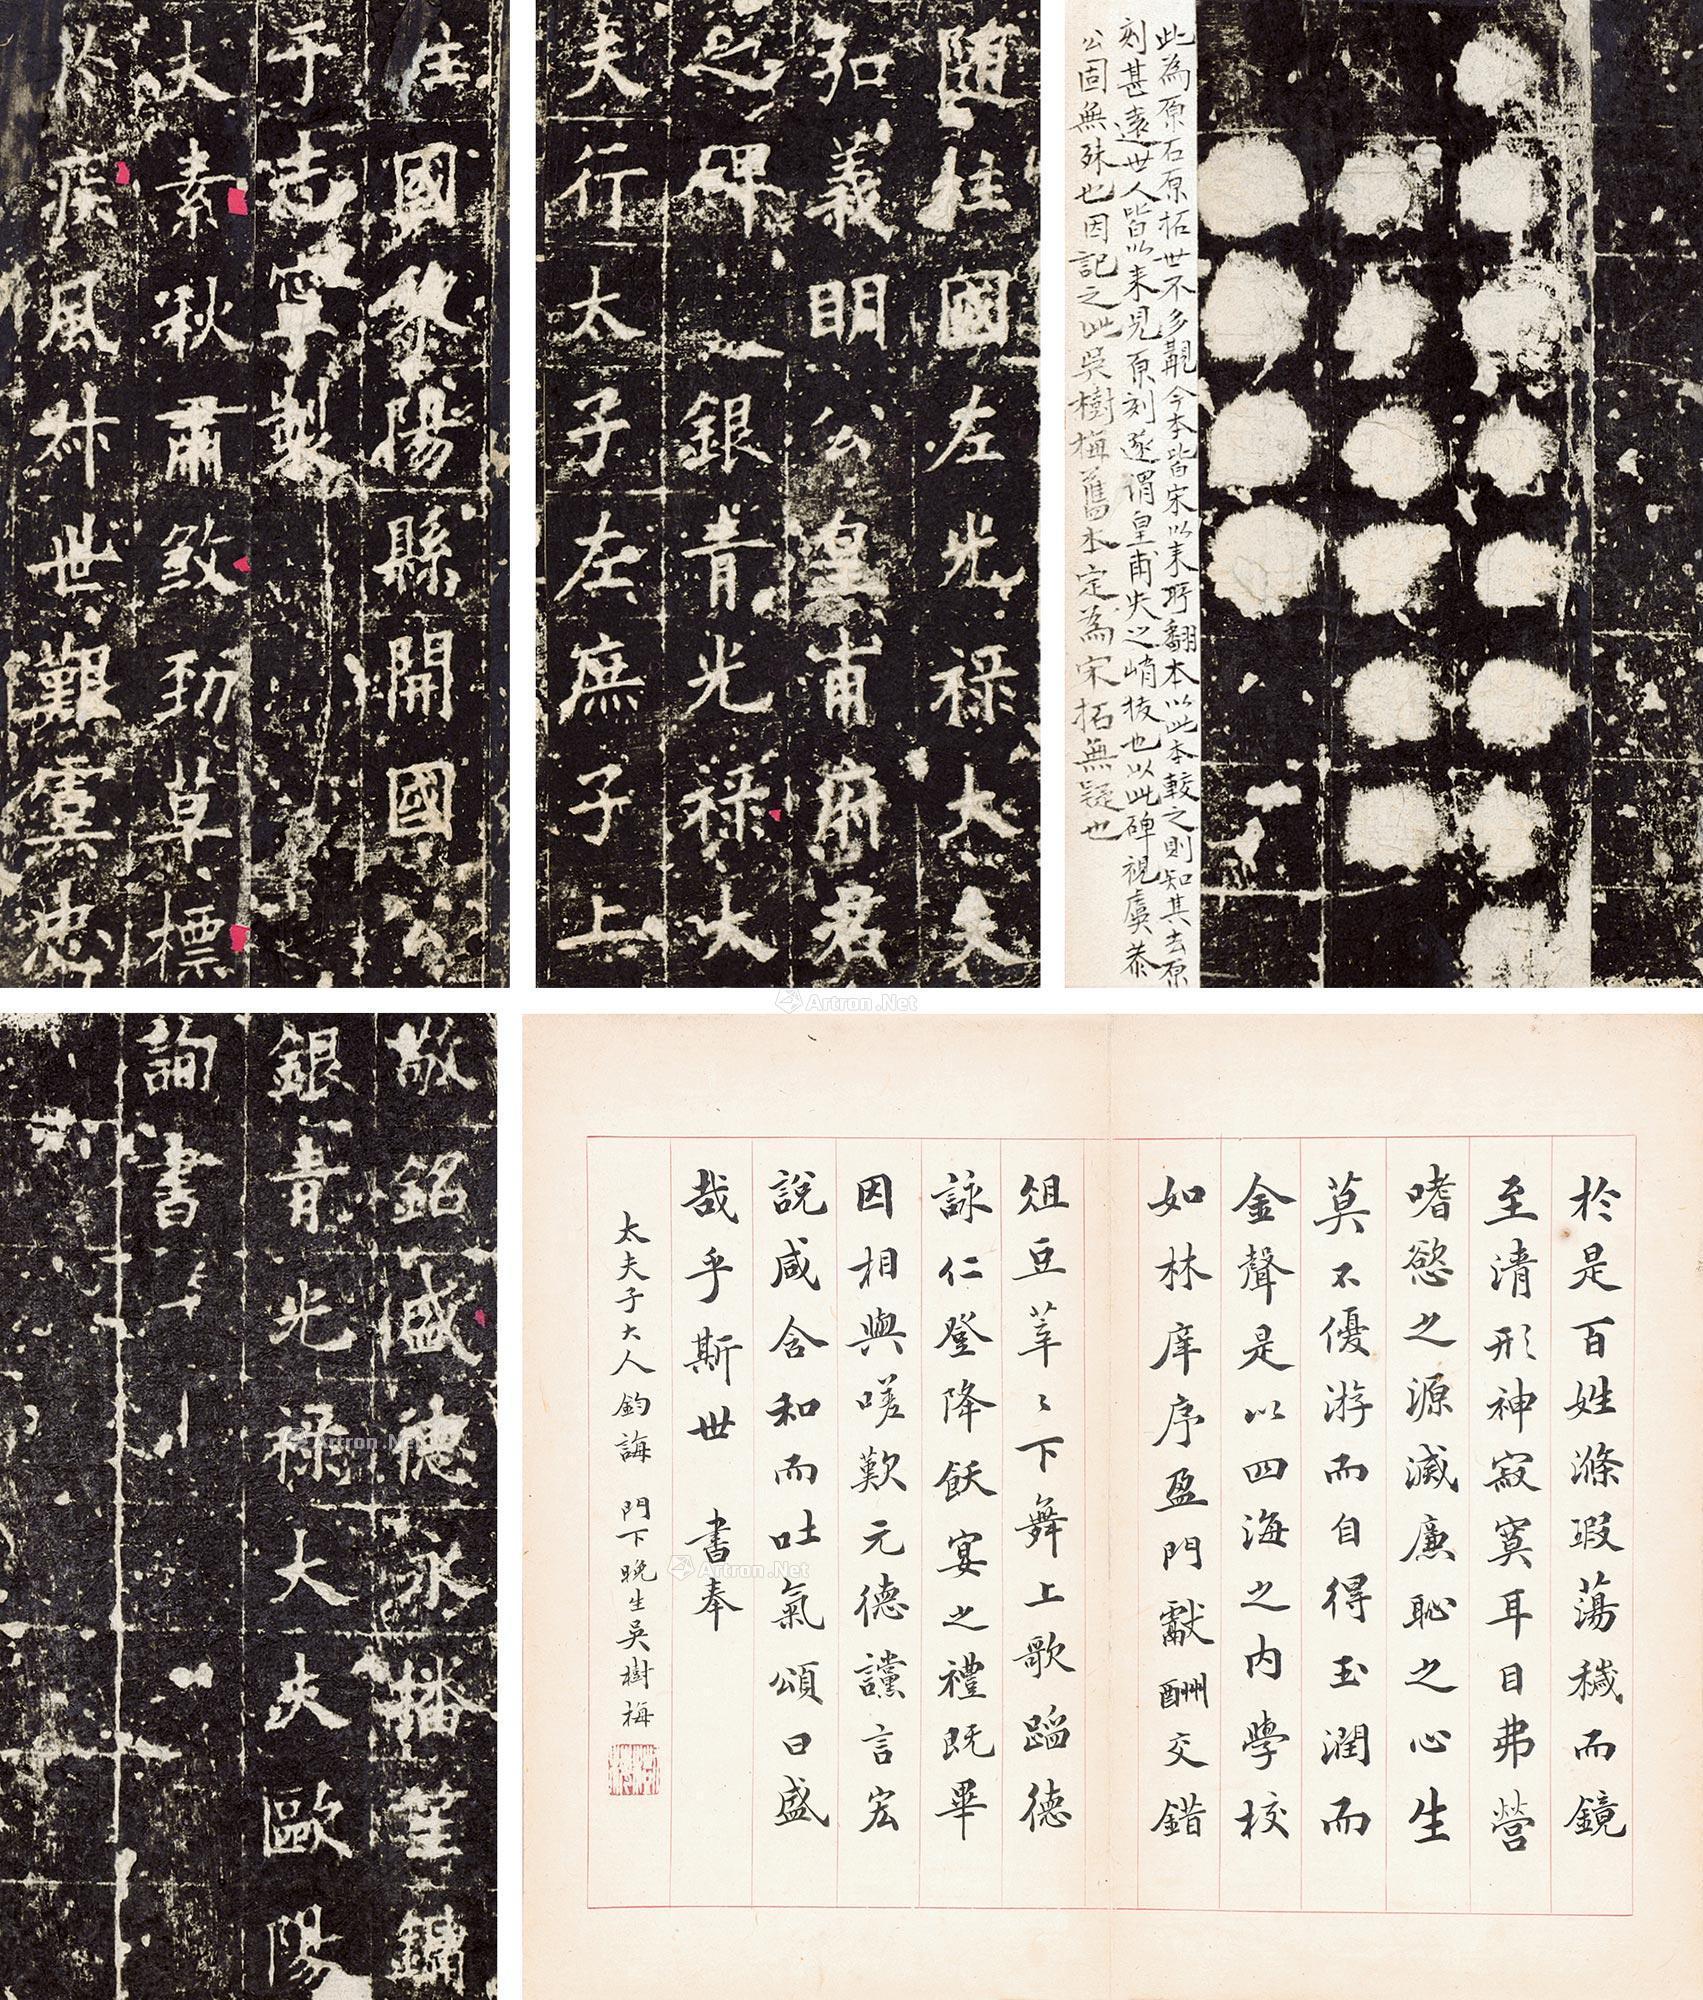 此為原石原拓世不多覯今本皆宋以来所翻本以此本較之則知其去原
刻甚遠世人皆以未見原刻遂謂皇甫失之峭拔也以此碑視虞恭
公固無殊也因記之此吳樹梅舊本定為宋拓無疑也
随柱國左光祿大夫
弘義明公皇甫府君
之碑 銀青光祿大
夫行太子左庶子上
柱國黎陽縣開國公
于志寧製
夫素秋肅煞勁草標
於疾風叶世艱虞忠
敬銘盛德永播笙鏞
銀青光祿大夫歐陽
詢書
於是百姓滌瑕蕩穢而鏡
至清形神寂寞耳目弗營
嗜慾之源滅廉恥之心生
莫不優游而自得玉潤而
金聲是以四海之內學校
如林庠序盈門獻酬交錯
俎豆莘〻下舞上歌蹈德
詠仁登降飫宴之禮既畢
因相與嗟歎元德讜言宏
說咸含和而吐氣頌曰盛
哉乎斯世 書奉
太夫子大人鈞誨 門下晚生吳樹梅
Artron.Net
Artron.Net
Artron.Net